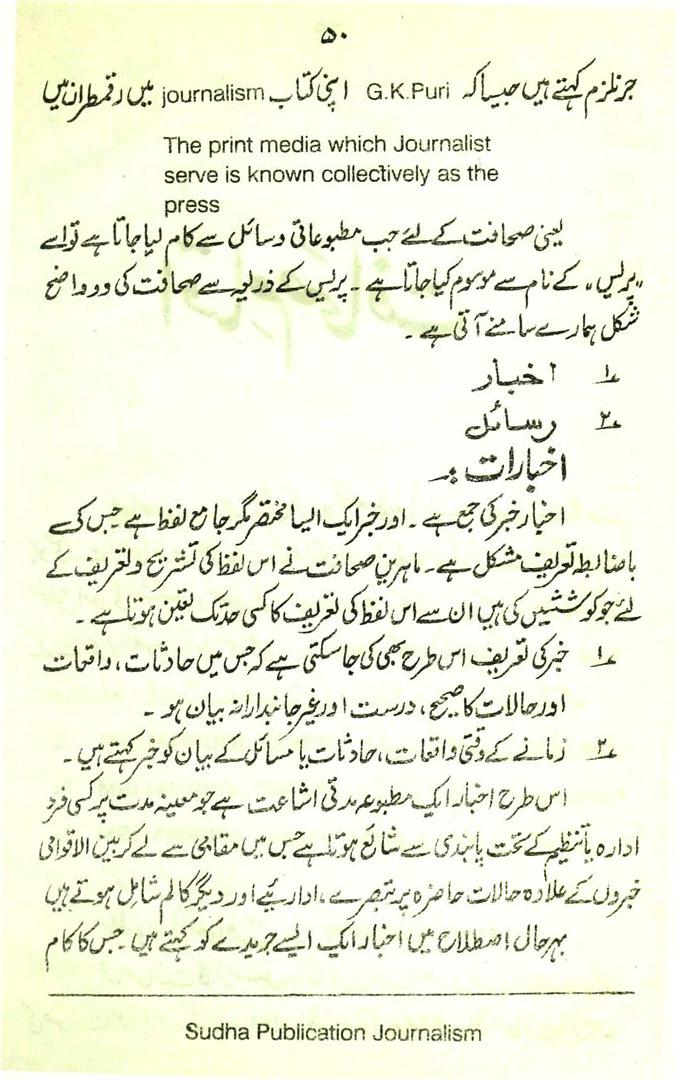 ۵۰
جرنلزم کہتے ہیں جیسا کہ G.K.Puri اپنی کتاب journalism میں رقمطراز ہیں
The print media which Journalist
serve is known collectively as the
press
یعنی صحافت کے لئے جب مطبوعاتی وسائل سے کام لیا جاتا ہے تو اسے
"پریس" کے نام سے موسوم کیا جاتا ہے ۔ پریس کے ذریعہ سے صحافت کی دو واضح
شکل ہمارے سامنے آتی ہے ۔
۱؎ اخبار
۲؎ رسائل
اخبارات :۔
اخبار خبر کی جمع ہے ۔ اور خبر ایک ایسا مختصر مگر جامع لفظ ہے جس کی
باضابطہ تعریف مشکل ہے ۔ ماہرین صحافت نے اس لفظ کی تشریح و تعریف کے
لئے جو کوششیں کی ہیں ان سے اس لفظ کی تعریف کا کسی حد تک تعین ہوتا ہے ۔
۱؎ خبر کی تعریف اس طرح بھی کی جاسکتی ہے کہ جس میں حادثات، واقعات
اور حالات کا صحیح، درست اور غیر جانبدارانہ بیان ہو ۔
۲؎ زمانے کے وقتی واقعات، حادثات یا مسائل کے بیان کو خبر کہتے ہیں ۔
اس طرح اخبار ایک مطبوعہ مدتی اشاعت ہے جو معینہ مدت پر کسی فرد
ادارہ یا تنظیم کے تحت پابندی سے شائع ہوتا ہے جس میں مقامی سے لے کر بین الاقوامی
خبروں کے علاوہ حالات حاضرہ پر تبصرے، ادارئیے اور دیگر کالم شامل ہوتے ہیں
بہر حال اصطلاح میں اخبار ایک ایسے جریدے کو کہتے ہیں ۔ جس کا کام
Sudha Publication Journalism